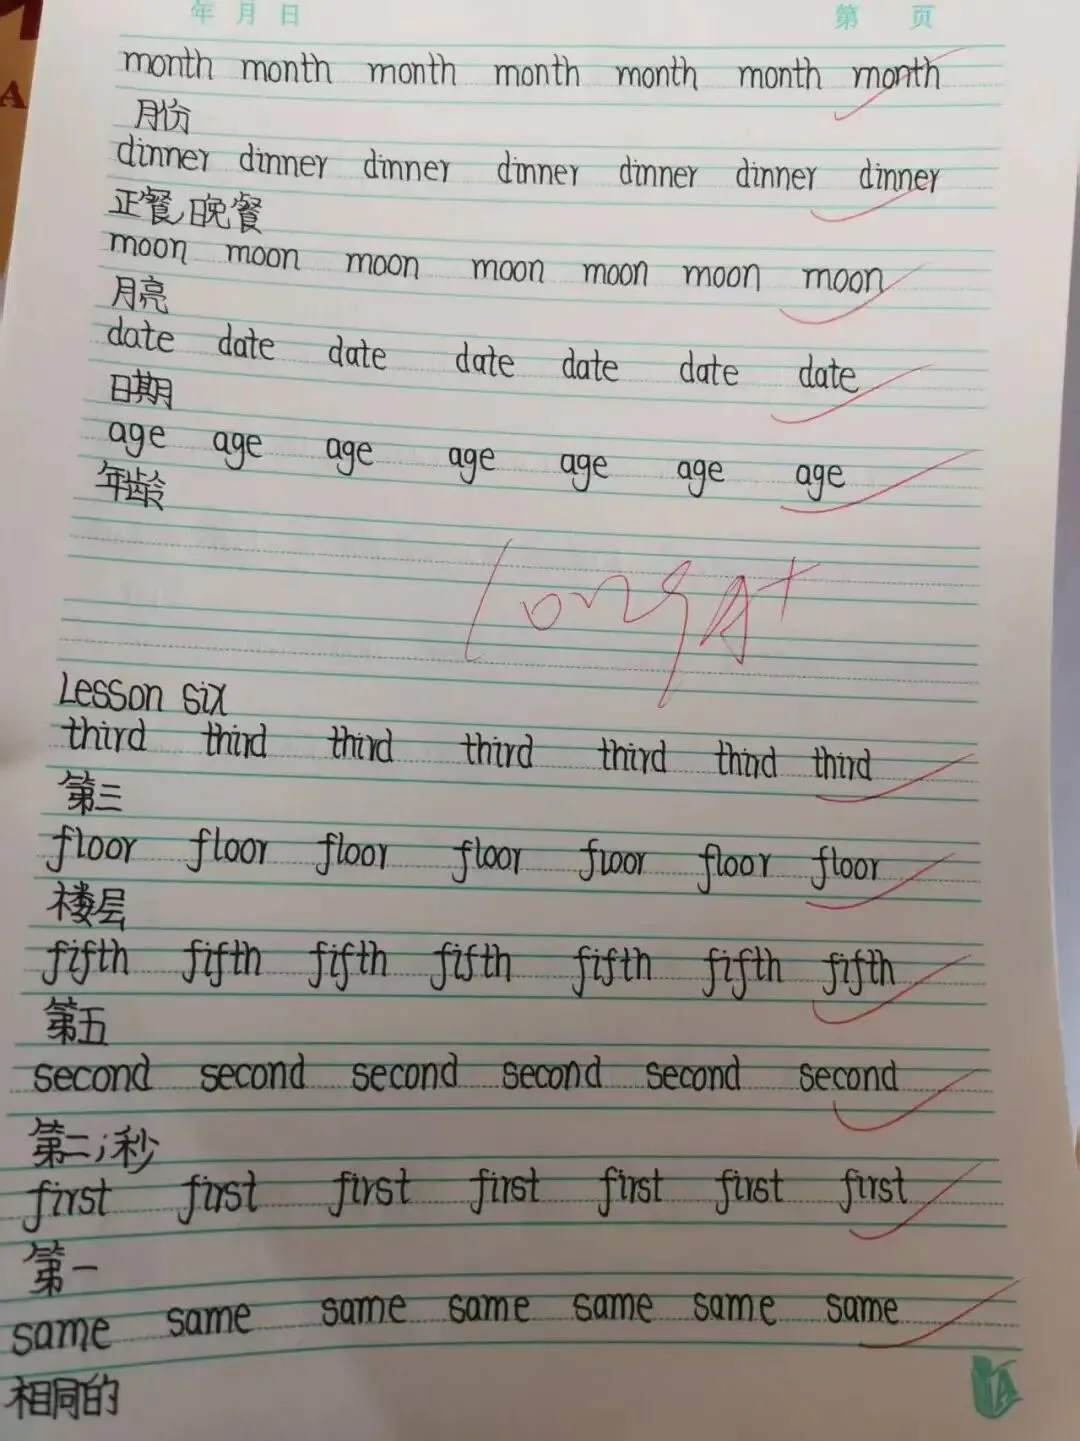 年 月 日 第 页
month month month month month month month
月份
dinner dinner dinner dinner dinner dinner dinner
正餐,晚餐
moon moon moon moon moon moon moon
月亮
date date date date date date date
日期
age age age age age age age
年龄
A+
Lesson six
third third third third third third third
第三
floor floor floor floor floor floor floor
楼层
fifth fifth fifth fifth fifth fifth fifth
第五
second second second second second second
第二;秒
first first first first first first first
第一
same same same same same same same
相同的